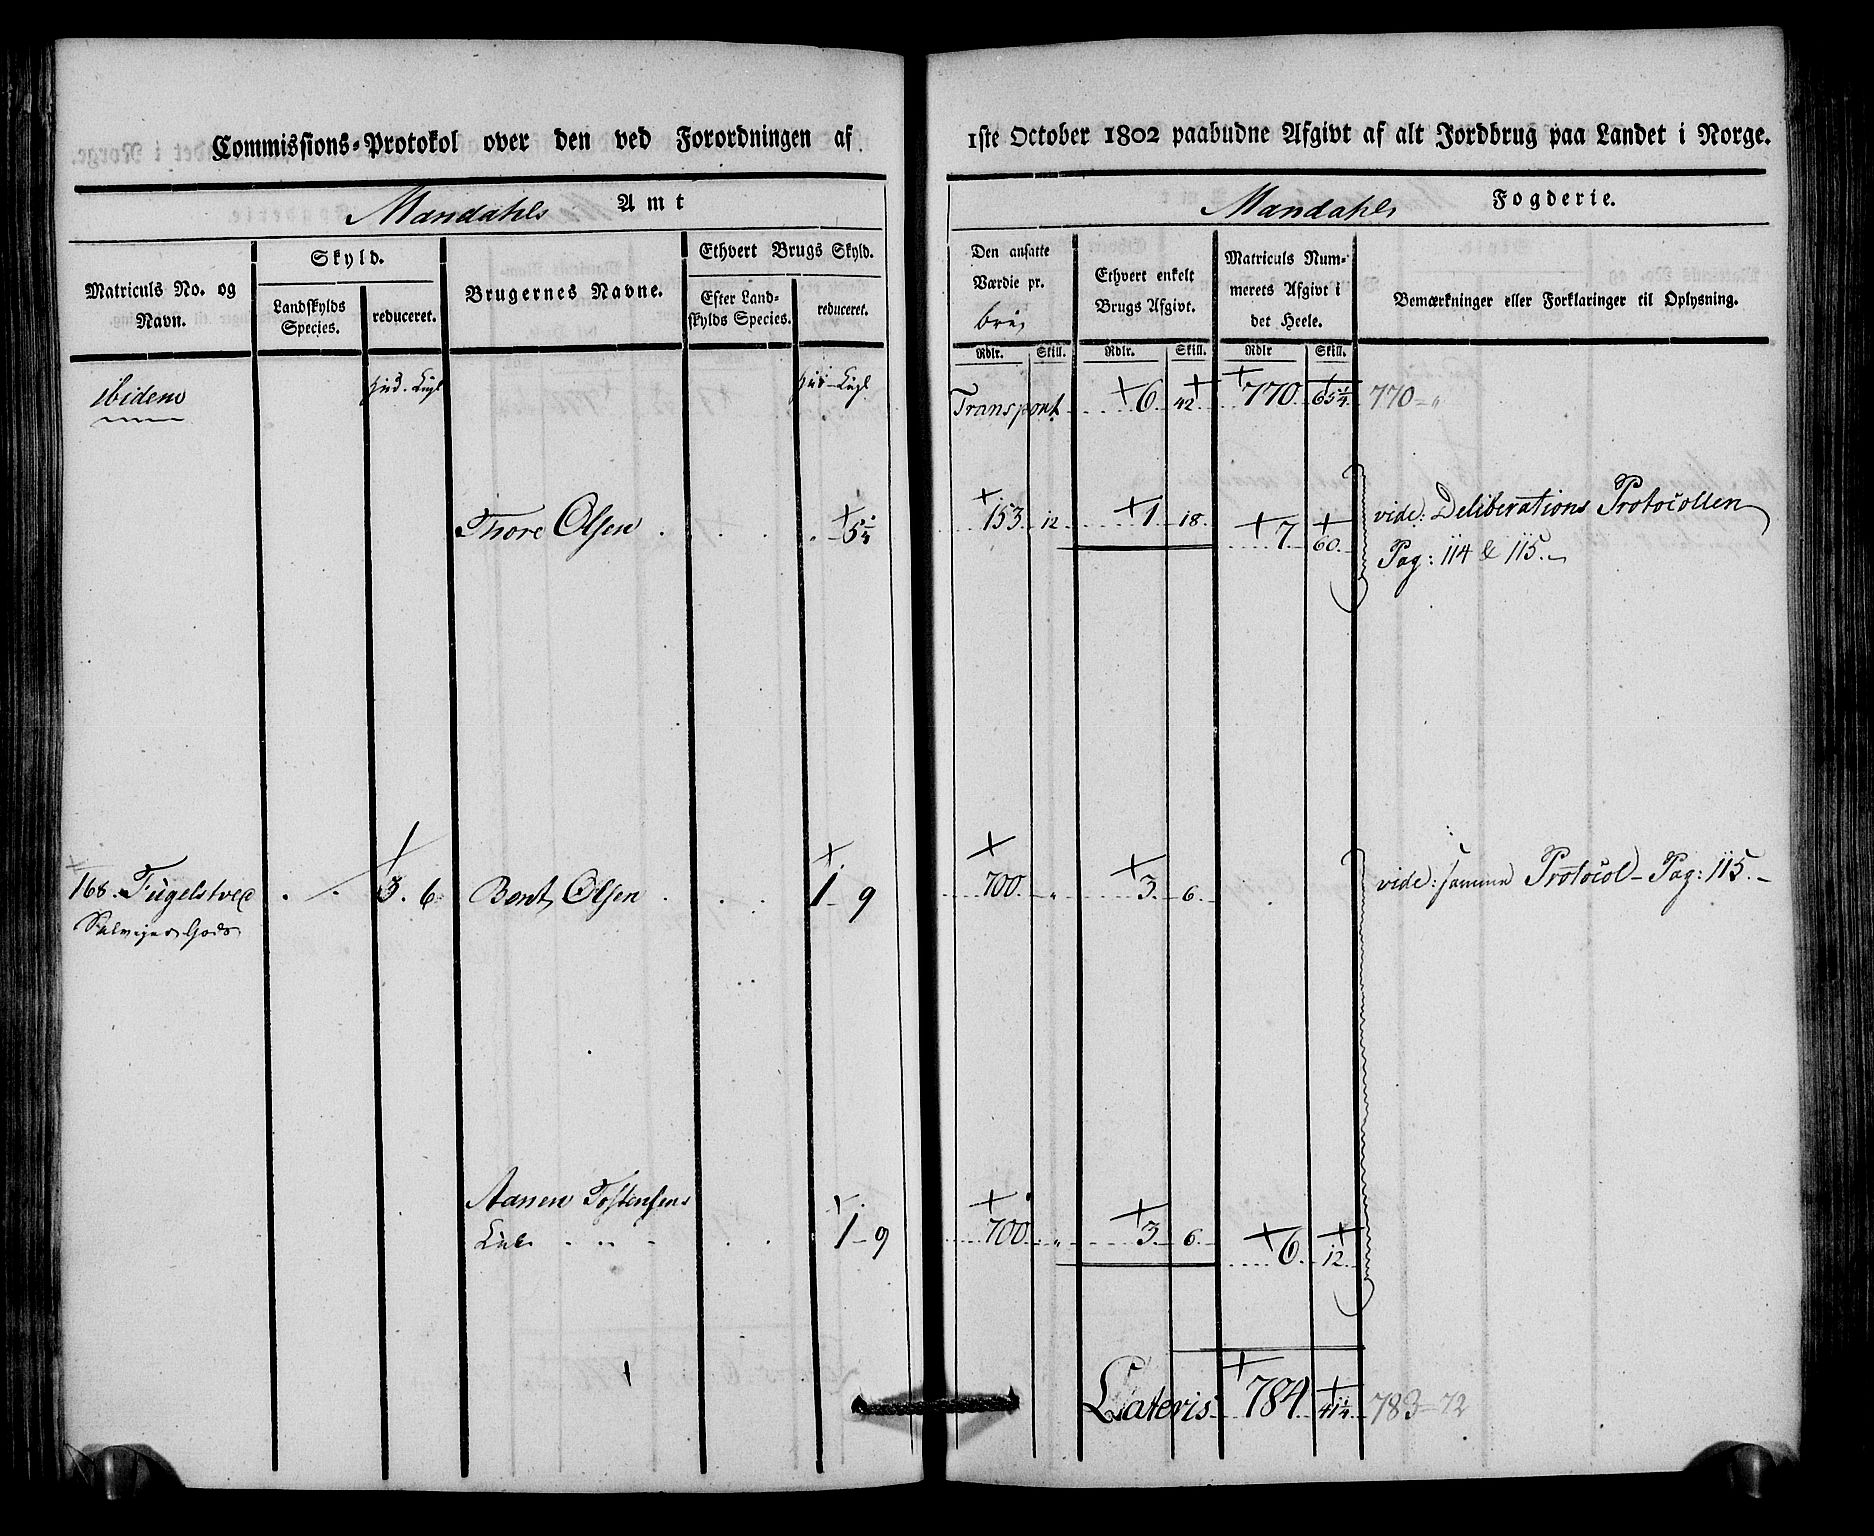 Commissions-Protokol over den ved Forordningen af 1ste October 1802 paabudne Afgivt af alt Jordbrug paa Landet i Norge.
Mandahls Amt
Mandahls Fogderie.
Matriculs No. og Navn.
Skyld.
Landskylds Species.
reduceret.
Brugernes Navne.
Ethvert Brugs Skyld.
Efter Landskylds Species.
reduceret.
Den ansatte Værdie pr.
Ethvert enkelt Brugs Afgivt.
Matriculs Nummerets Afgivt i det Heele.
Bemærkninger eller Forklaringer til Oplysning.
Rdlr. Skill. Rdlr. Skill. Rdlr Skill.
ibidem Hud. Engl. Hud. Engl. Transport 6. 42 770. 65 1/4 770 - "
Thore Olsen 5 1/4 153. 12 1. 18. 7. 60. vide: Deliberations Protocollen
Pag: 114 & 115.-
168. Fugelstved 3. 6. Berdt Olsen 1 - 9 700. " 3. 6. vide: samme Protocol - Pag: 115.-
Gods
Aanen Tostensens
1 - 9 700. " 3. 6. 6. 12.
Lateris 784. 41 1/4 783 - 72